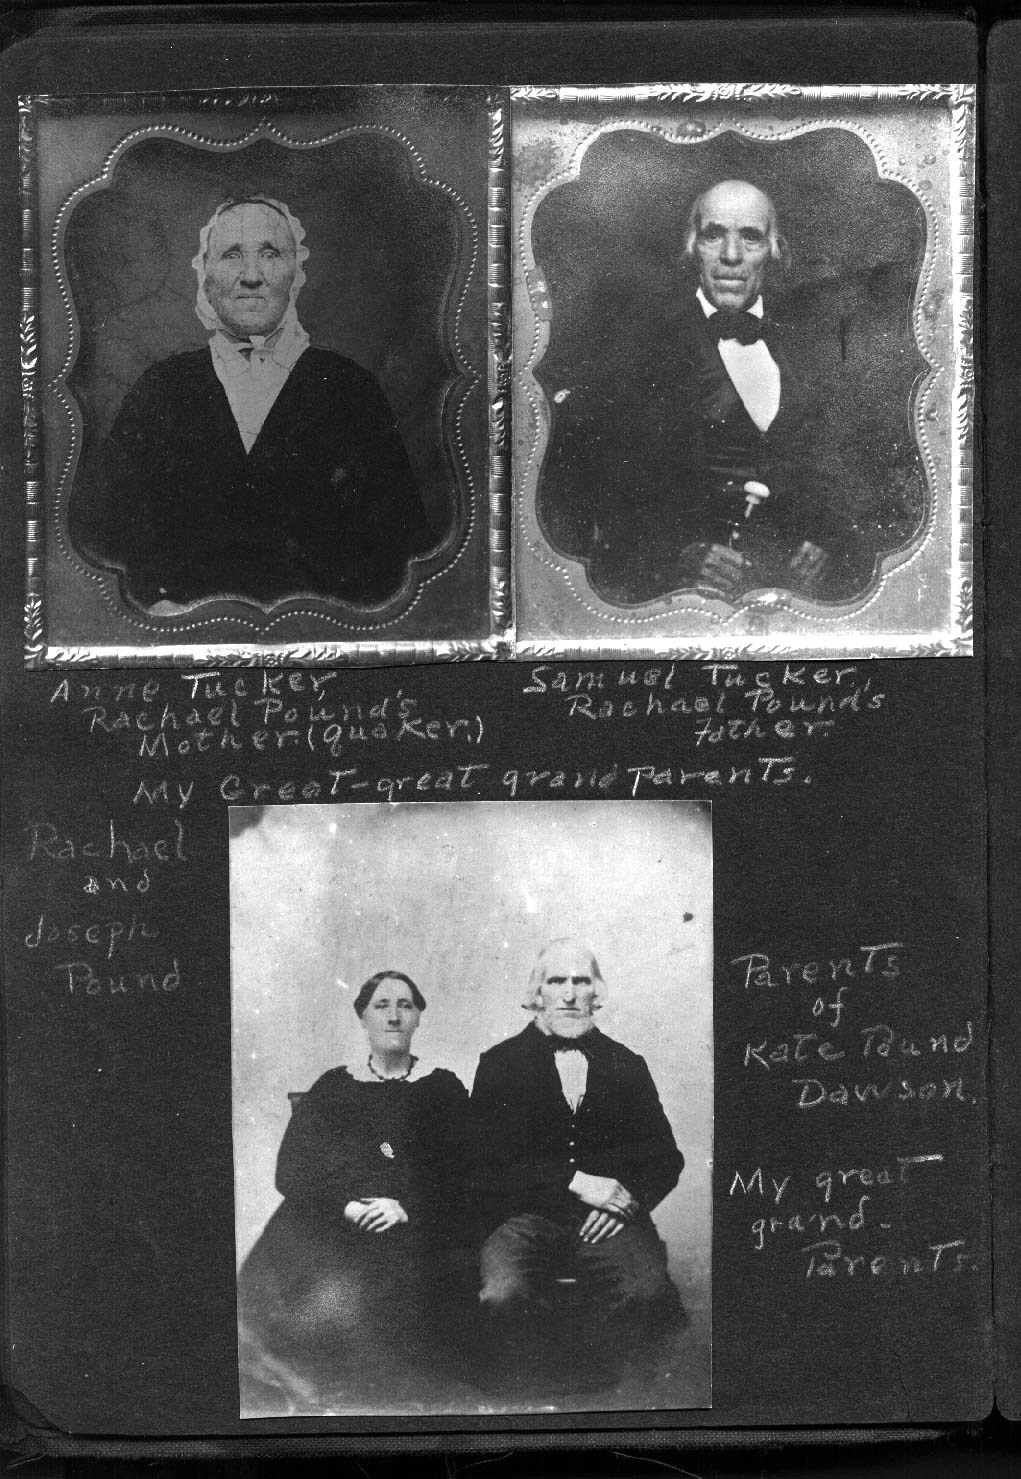 Anne Tucker,
Rachael Pound's
Mother. (Quaker.)
Samuel Tucker,
Rachael Pound's
Father.
My Great-great grand parents.
Rachael
and
Joseph
Pound
Parents
of
Kate Pound
Dawson.
My great
grand-
Parents.